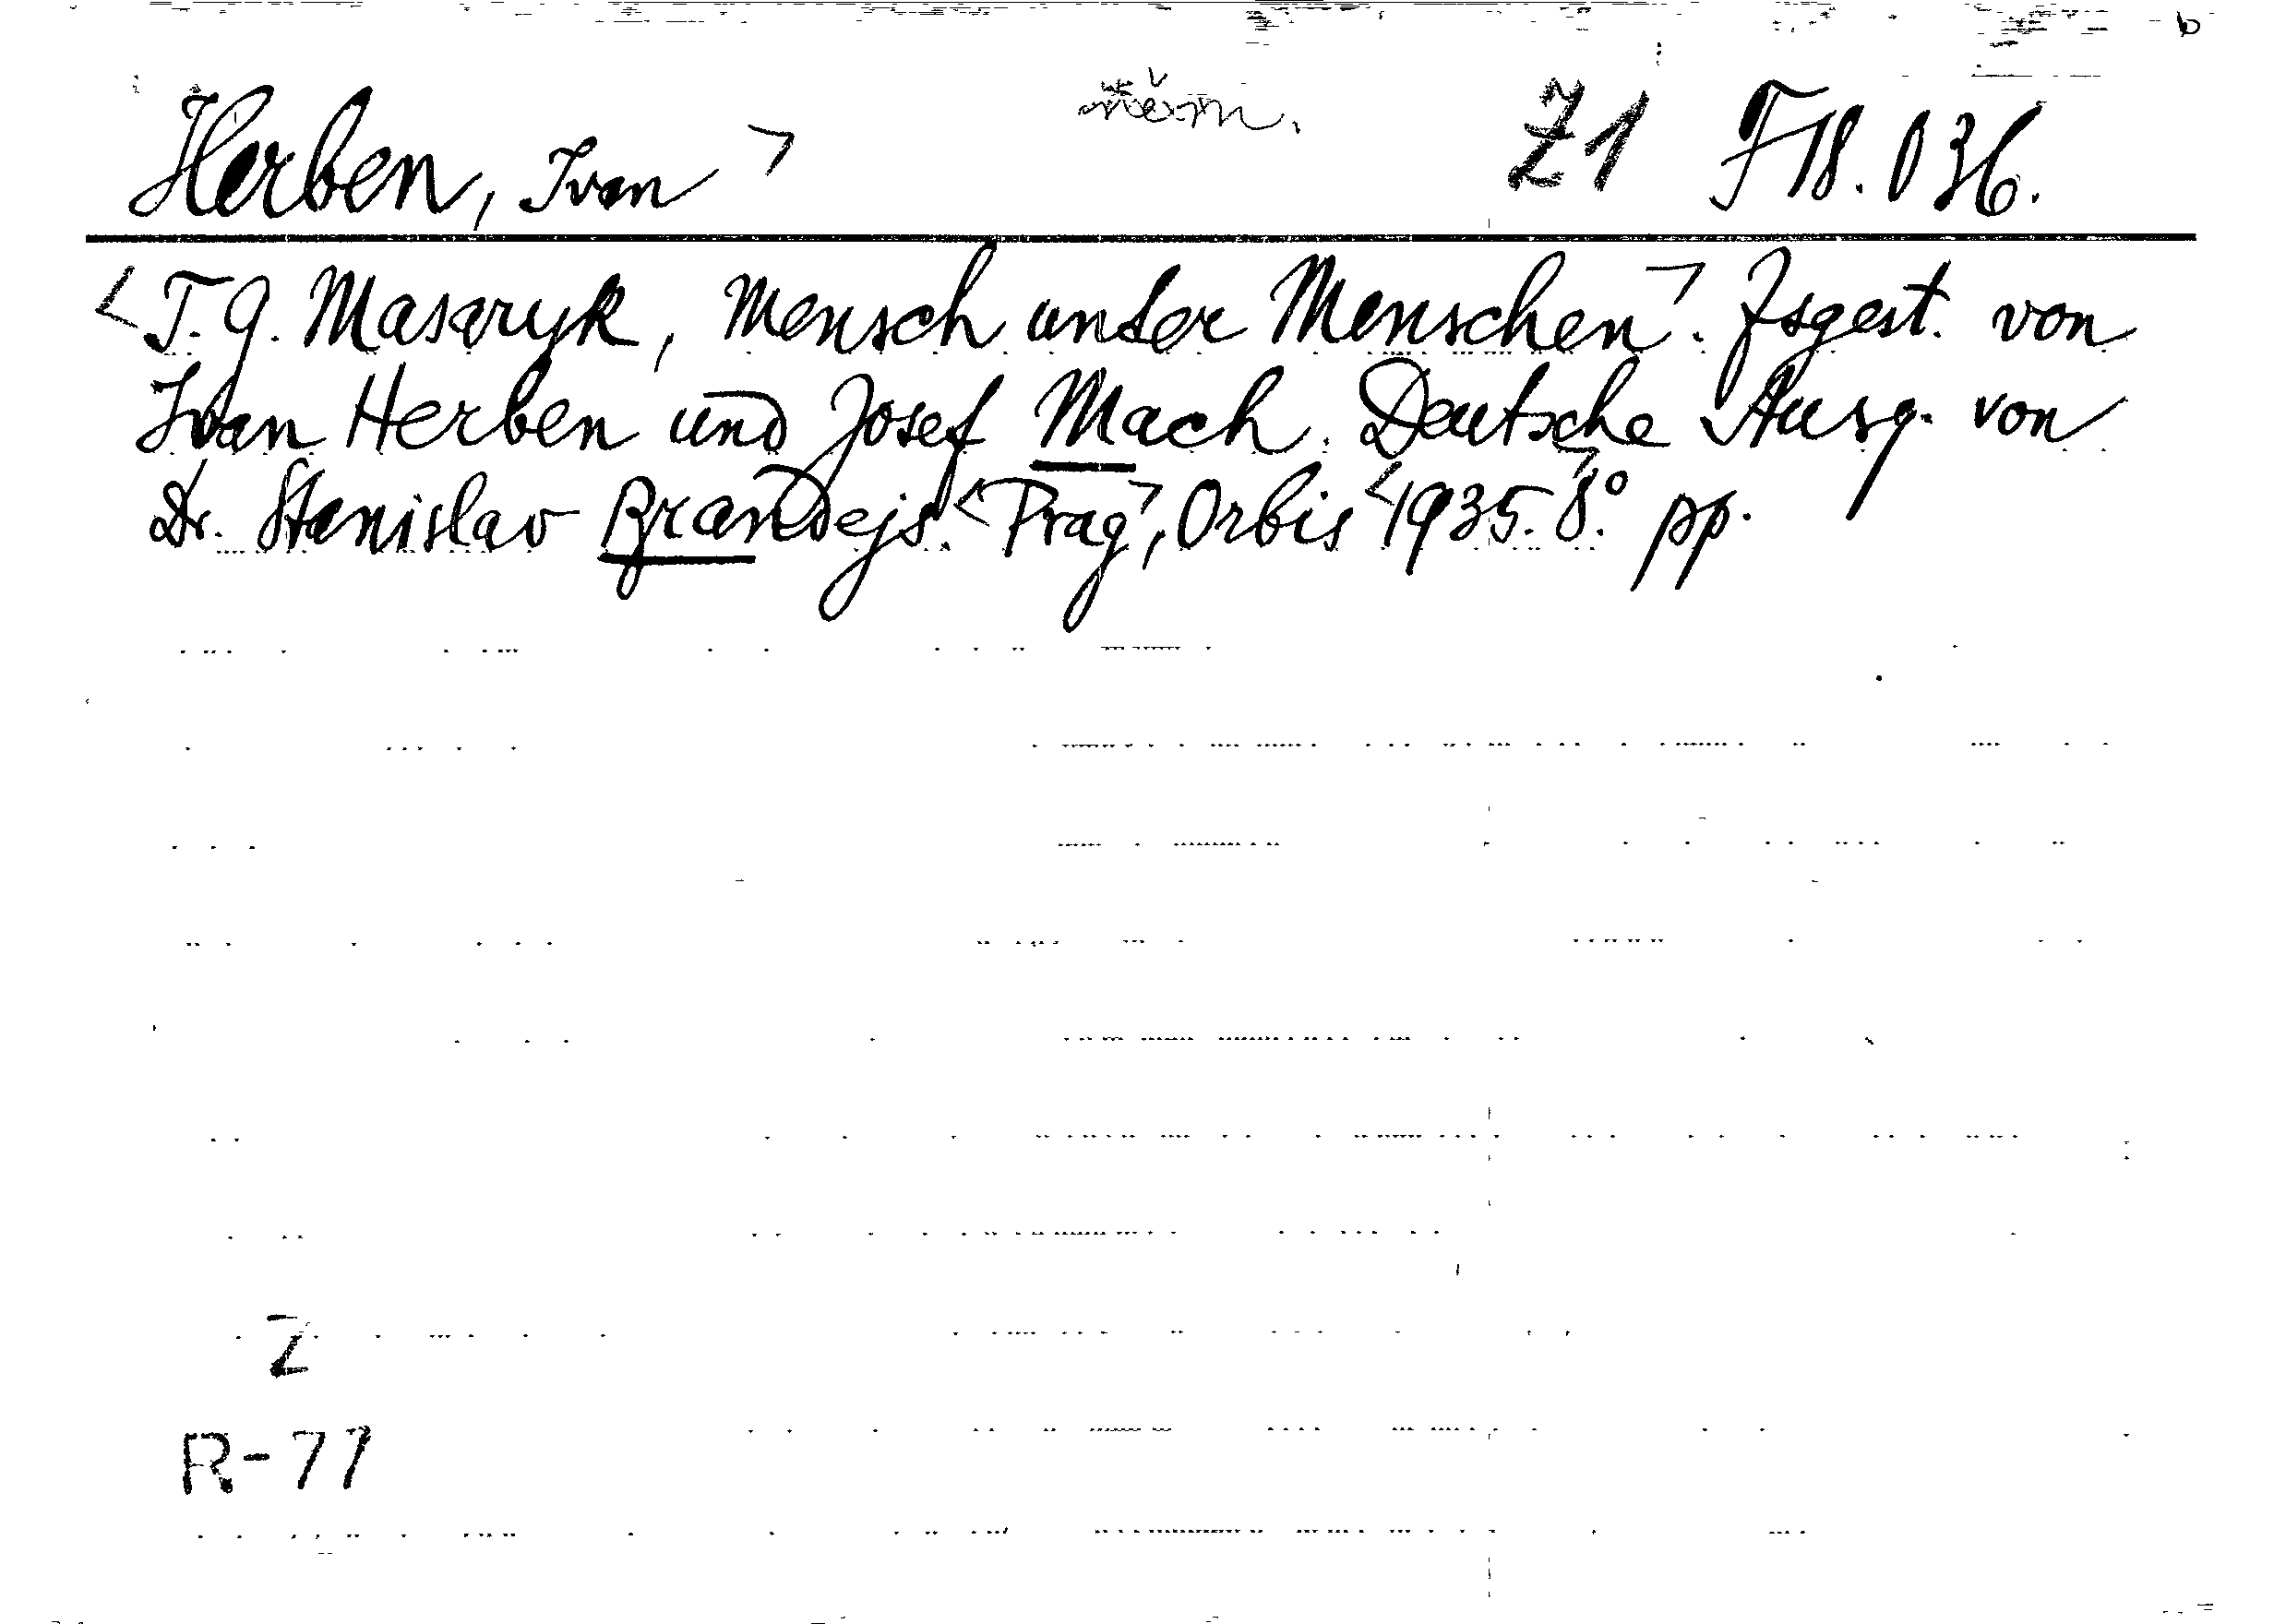 Herben, Ivan > něm. Z1 F18.036.
<T. G. Masaryk, Mensch unter Menschen>. Zsgest. von
Ivan Herben und Josef Mach. Deutsche Ausg. von
Dr. Stanislav Brandejs. <Prag>, Orbis <1935.> 8.° pp.
Z
R-77